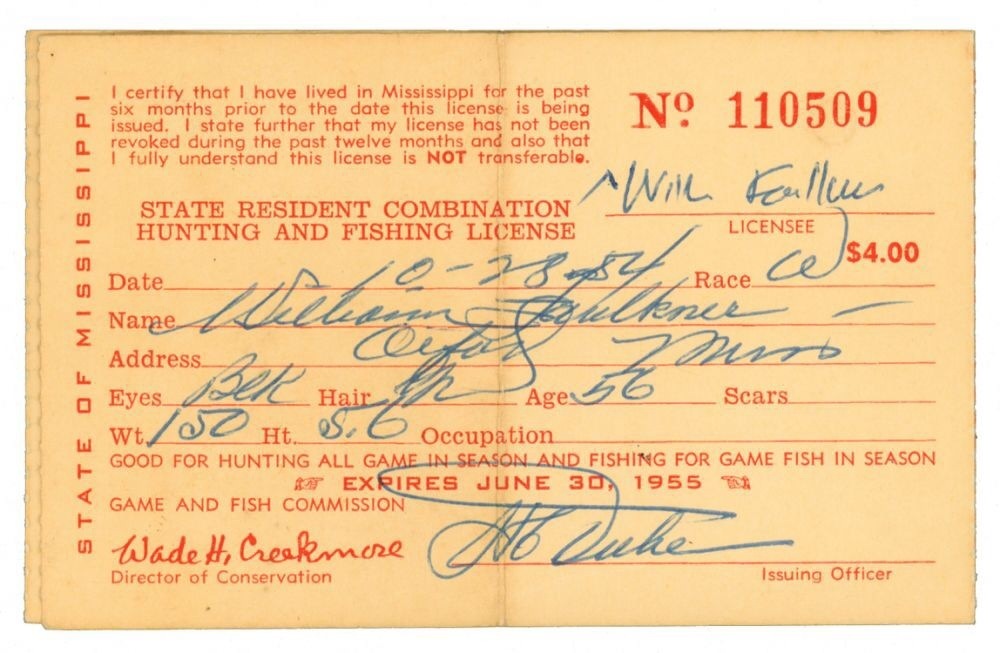 STATE OF MISSISSIPPI
I certify that I have lived in Mississippi for the past
six months prior to the date this license is being
issued. I state further that my license has not been
revoked during the past twelve months and also that
I fully understand this license is NOT transferable.
Nº 110509
LICENSEE
STATE RESIDENT COMBINATION
HUNTING AND FISHING LICENSE
$4.00
Date 10-28-54 Race
Name William Faulkner
Address Oxford Miss
Eyes Blk Hair Age 56 Scars
Wt. 150 Ht. 5.6 Occupation
GOOD FOR HUNTING ALL GAME IN SEASON AND FISHING FOR GAME FISH IN SEASON
EXPIRES JUNE 30, 1955
GAME AND FISH COMMISSION
Wade H. Creekmore
Director of Conservation
Duke
Issuing Officer